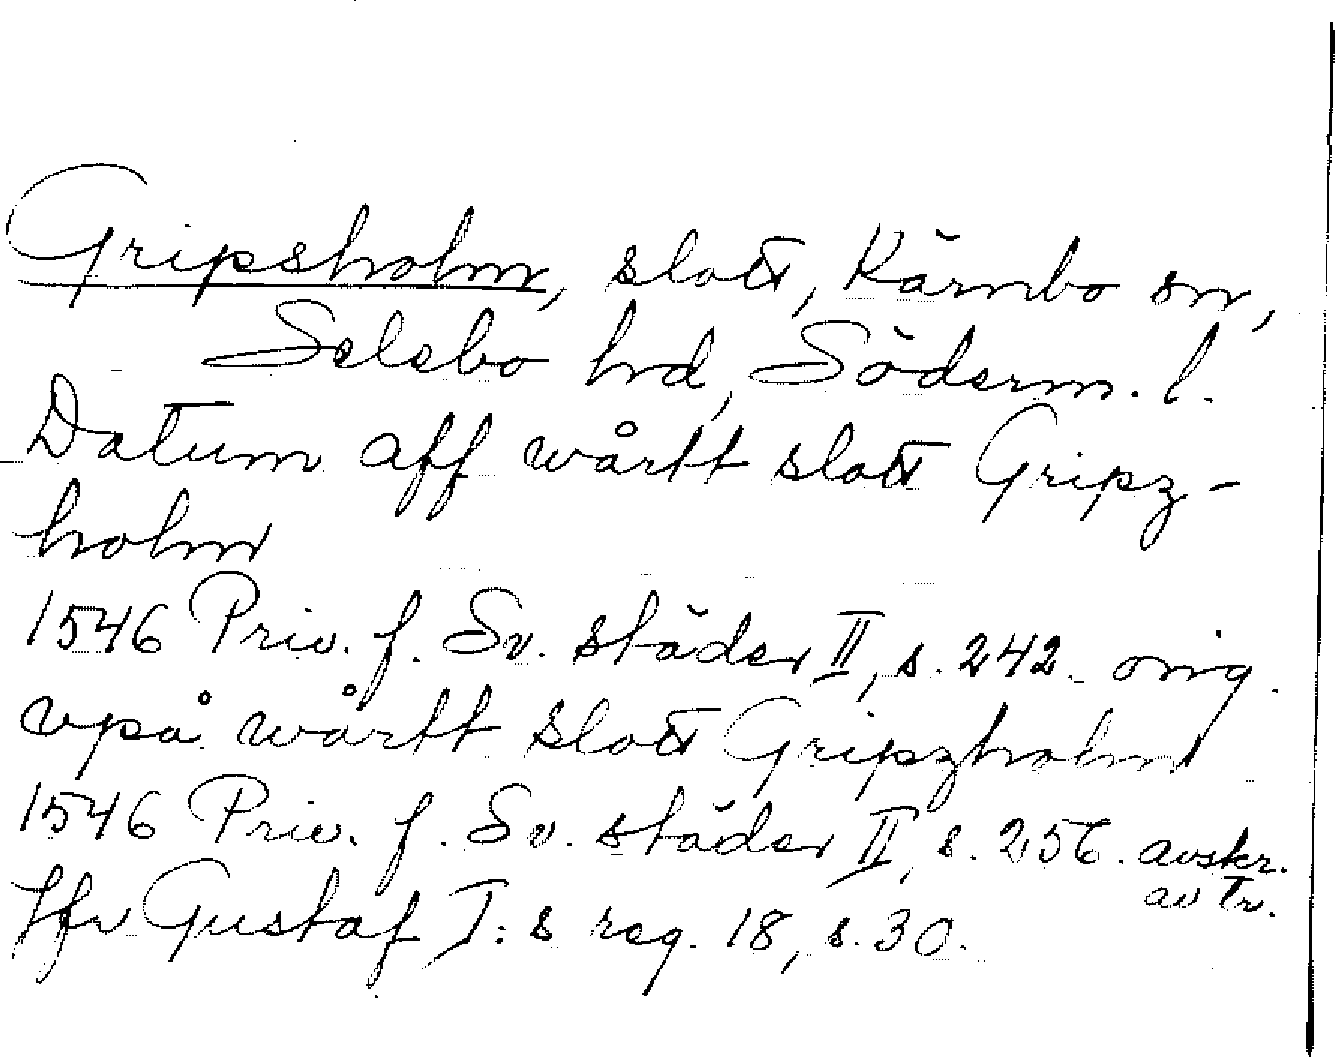 Gripsholm, slott, Kärnbo sn,
Selebo hd, Söderm. l.
Datum aff wårtt slott Gripz-
holm
1546 Priv. f. Sv. städer II, s. 242. orig.
vpå wårtt slott Gripzholm
1546 Priv. f. Sv. städer II, s. 256. avskr.
av tr.
Jfr Gustaf I:s reg. 18, s. 30.